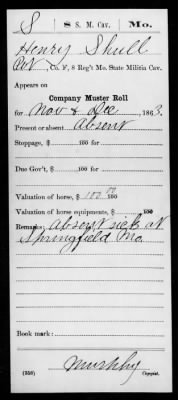 S 8 S. M. Cav. Mo.
Henry Shull
Pvt, Co. F, 8 Reg't Mo. State Militia Cav.
Appears on
Company Muster Roll
for Nov & Dec, 1863.
Present or absent Absent
Stoppage, $ 100 for
Due Gov't, $ 100 for
Valuation of horse, $ 100 00 100
Valuation of horse equipments, $ 100
Remarks: Absent sick at
Springfield Mo.
Book mark:
Murphy
(356) Copyist.